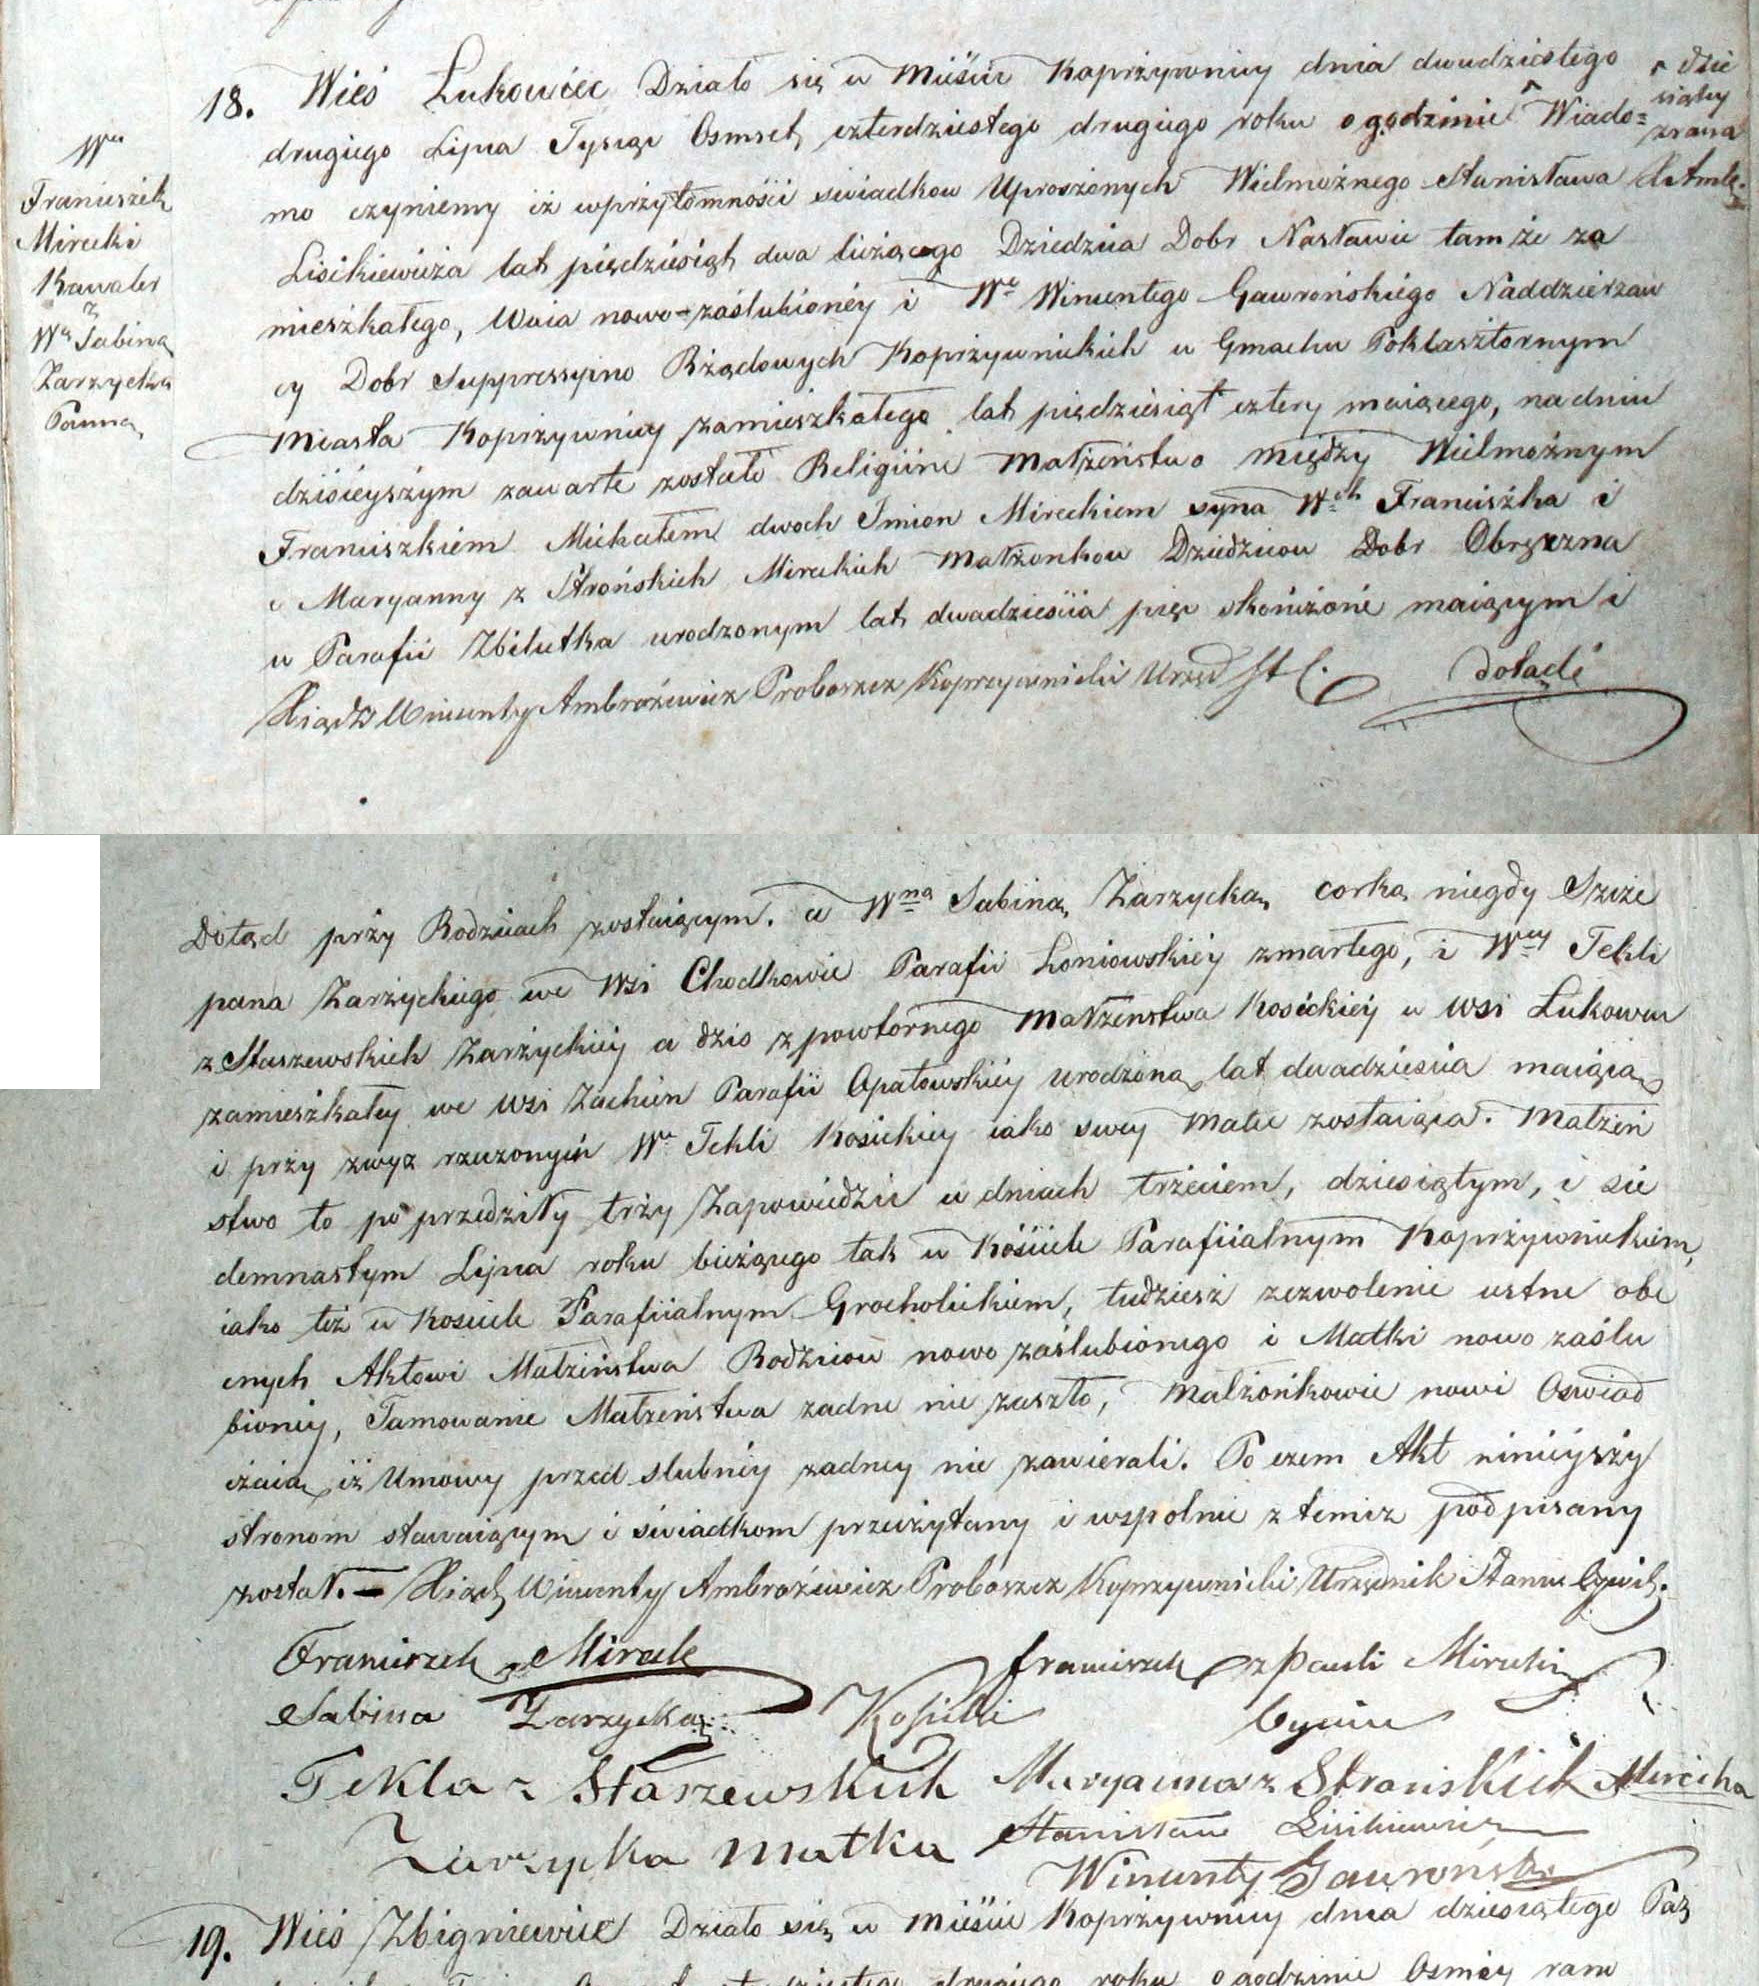 18. Wieś Łukowiec Działo się w Mieście Koprzywnicy dnia dwudziestego
drugiego Lipca Tysiąc Osmset czterdziestego drugiego roku o godzinie ^ Wiado=
^ dzie
siątey
zrana
mo czyniemy iż w przytomności swiadkow Uproszonych Wielmożnego Stanisława
Lisikiewicza lat pięćdziesiąt dwa liczącego Dziedzica Dobr Nasławic tamże za
mieszkałego, Wuia nowo-zaślubionéy i Wo Wincentego Gawrońskiego Naddzierzaw
cy Dobr Suppressyino Rządowych Koprzywnickich w Gmachu Poklasztornym
Miasta Koprzywnicy zamieszkałego lat pięćdziesiąt cztery maiącego, na dniu
dzisieyszym zawarte zostało Religiine Małżeństwo między Wielmożnym
Franciszkiem Michałem dwoch Imion Mireckiem syna Wch Franciszka i
Maryanny z Strońskich Mireckich Małżonkow Dziedzicow Dobr Obręczna
w Parafii Zbilutka urodzonym lat dwadzieścia pięc skończone maiącym i
Xiądz Wincenty Ambrożewicz Proboszcz Koprzywnicki Urzęd St C. dotąd
Wny
Franciszek
Mirecki
Kawaler
z
Wą Sabiną
Zarzycką
Panną
Dotąd przy Rodzicach zostaiącym. a Wną Sabiną Zarzycką corką niegdy Szcze
pana Zarzyckiego we Wsi Chodkowie Parafii Łoniowskiéy zmarłego, i Wey Tekli
z Staszewskich Zarzyckiéy a dzis z powtornego Małżenstwa Kosickiéy w Wsi Łukowcu
zamieszkałey we Wsi Zochcin Parafii Opatowskiéy urodzoną lat dwadzieścia maiącą
i przy zwyz rzeczonyin Wey Tekli Kosickiey iako swey Matce zostaiąca. Małżeń
stwo to poprzedziły trzy Zapowiedzie w dniach trzeciem, dziesiątym, i sie
demnastym Lipca roku bieżącego tak w Kościele Parafiialnym Koprzywnickiem,
iako też w Kosciele Parafiialnym Grocholickiem, tudziesz zezwolenie ustne obe
cnych Aktowi Małżeństwa Rodzicow nowo zaślubionego i Matki nowo zaślu
bioney, Tamowanie Małżeństwa zadne nie zaszło, Małżonkowie nowi Oswiad
czaią iż Umowy przed slubnéy zadney nie zawierali. Po czem Akt ninieyszy
stronom stawaiącym i świadkom przeczytany i wspolnie z temiz podpisany
został. — Xiądz Wincenty Ambrożewicz Proboszcz Koprzywnicki Urzędnik Stanu Cywil.
Franciszek Mirecki Franciszek Mirecki
Sabina Zarzycka Kosicki
Tekla z Staszewskich Maryanna z Strońskich Mirecka
Zarzycka Matka Stanisław Lisikiewicz
Wincenty Gawroński
19. Wieś Zbigniewice Działo się w Mieście Koprzywnicy dnia dziesiątego Paź
drugiego roku o godzinie Osméy rano